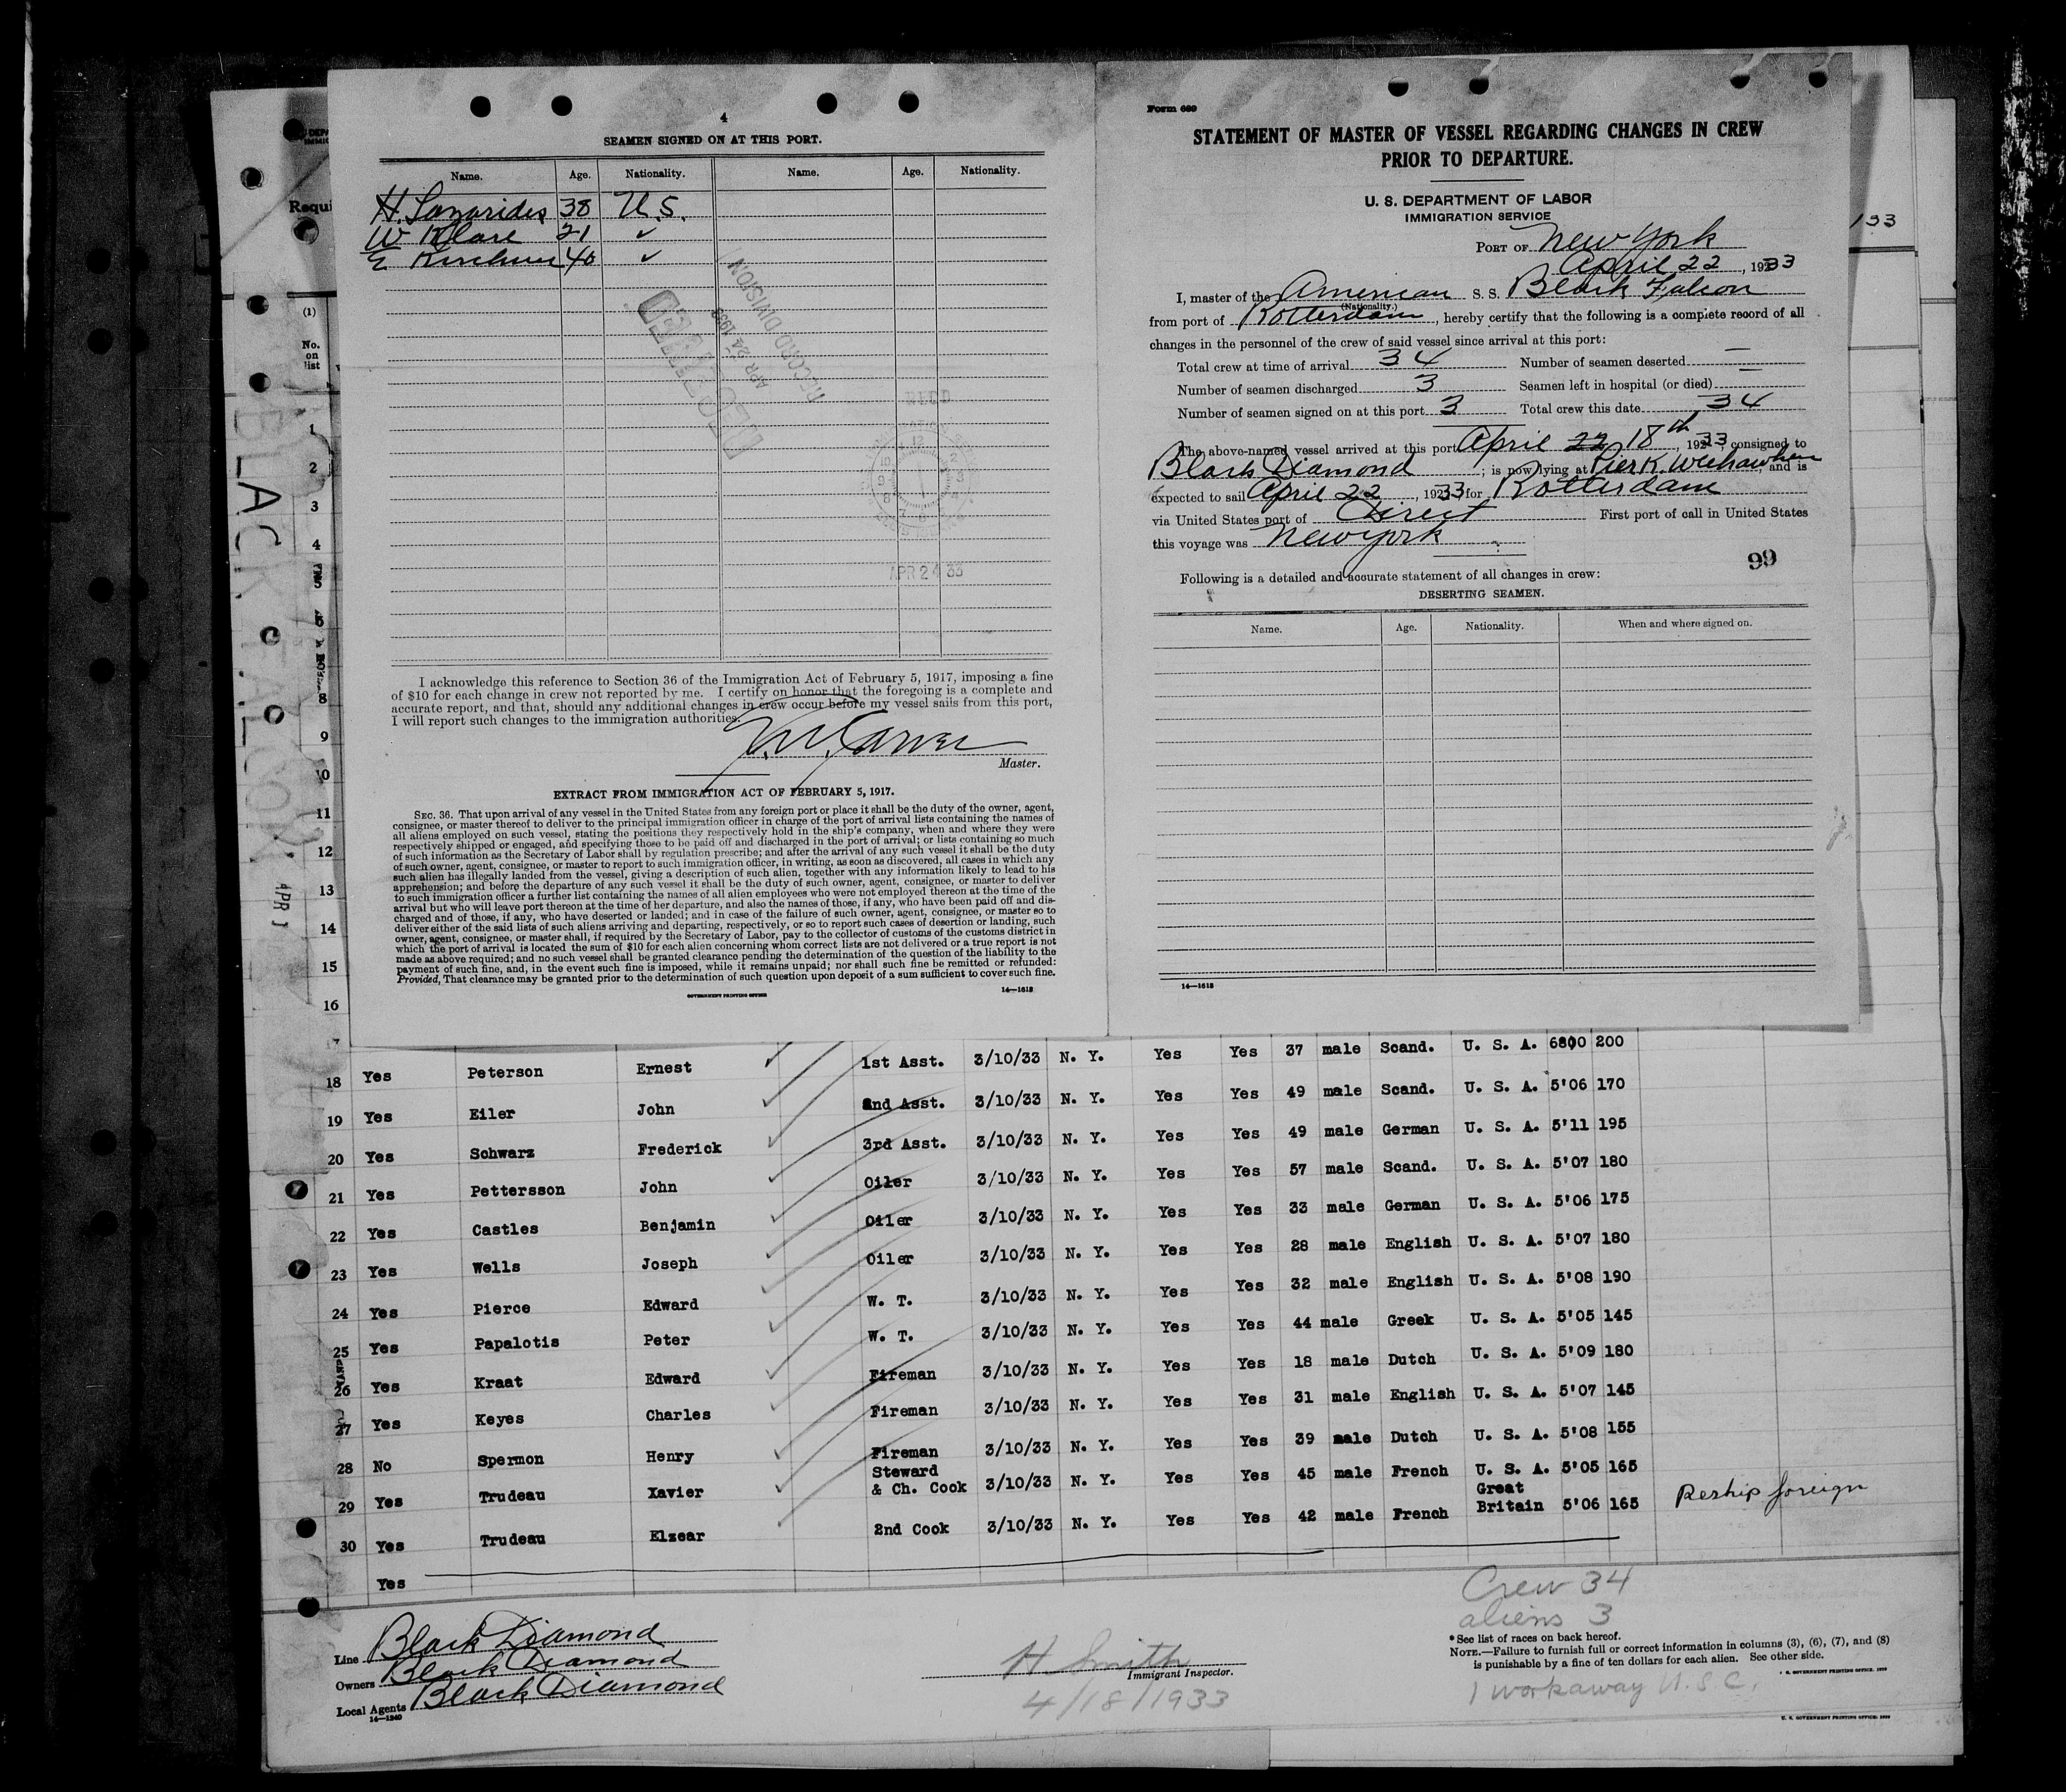 4
SEAMEN SIGNED ON AT THIS PORT.
Name. Age. Nationality. Name. Age. Nationality.
H. Lazarides 38 U.S.
W 21 ✓
E 40 ✓
RECORD DIVISION
APR 24 1933
APR 24 33
I acknowledge this reference to Section 36 of the Immigration Act of February 5, 1917, imposing a fine
of $10 for each change in crew not reported by me. I certify on honor that the foregoing is a complete and
accurate report, and that, should any additional changes in crew occur before my vessel sails from this port,
I will report such changes to the immigration authorities.
Master.
EXTRACT FROM IMMIGRATION ACT OF FEBRUARY 5, 1917.
SEC. 36. That upon arrival of any vessel in the United States from any foreign port or place it shall be the duty of the owner, agent,
consignee, or master thereof to deliver to the principal immigration officer in charge of the port of arrival lists containing the names of
all aliens employed on such vessel, stating the positions they respectively hold in the ship's company, when and where they were
respectively shipped or engaged, and specifying those to be paid off and discharged in the port of arrival; or lists containing so much
of such information as the Secretary of Labor shall by regulation prescribe; and after the arrival of any such vessel it shall be the duty
of such owner, agent, consignee, or master to report to such immigration officer, in writing, as soon as discovered, all cases in which any
such alien has illegally landed from the vessel, giving a description of such alien, together with any information likely to lead to his
apprehension; and before the departure of any such vessel it shall be the duty of such owner, agent, consignee, or master to deliver
to such immigration officer a further list containing the names of all alien employees who were not employed thereon at the time of the
arrival but who will leave port thereon at the time of her departure, and also the names of those, if any, who have been paid off and dis-
charged and of those, if any, who have deserted or landed; and in case of the failure of such owner, agent, consignee, or master so to
deliver either of the said lists of such aliens arriving and departing, respectively, or so to report such cases of desertion or landing, such
owner, agent, consignee, or master shall, if required by the Secretary of Labor, pay to the collector of customs of the customs district in
which the port of arrival is located the sum of $10 for each alien concerning whom correct lists are not delivered or a true report is not
made as above required; and no such vessel shall be granted clearance pending the determination of the question of the liability to the
payment of such fine, and, in the event such fine is imposed, while it remains unpaid; nor shall such fine be remitted or refunded:
Provided, That clearance may be granted prior to the determination of such question upon deposit of a sum sufficient to cover such fine.
GOVERNMENT PRINTING OFFICE 14—1613
Form 689
STATEMENT OF MASTER OF VESSEL REGARDING CHANGES IN CREW
PRIOR TO DEPARTURE.
U. S. DEPARTMENT OF LABOR
IMMIGRATION SERVICE
PORT OF New York
April 22, 1933
I, master of the American S. S. Black Falcon
(Nationality.)
from port of Rotterdam, hereby certify that the following is a complete record of all
changes in the personnel of the crew of said vessel since arrival at this port:
Total crew at time of arrival 34 Number of seamen deserted —
Number of seamen discharged 3 Seamen left in hospital (or died) —
Number of seamen signed on at this port 3 Total crew this date 34
The above-named vessel arrived at this port April 22 18th, 1933, consigned to
Black Diamond, is now lying at Pier K. Weehawken, and is
expected to sail April 22, 1933, for Rotterdam
via United States port of Direct First port of call in United States
this voyage was New York
99
Following is a detailed and accurate statement of all changes in crew:
DESERTING SEAMEN.
Name. Age. Nationality. When and where signed on.
14—1613
/33
Requi
(1)
No.
on
list
BLACK FALCON
APR
1
2
3
4
5
8
9
10
11
12
13
14
15
16
17
18 Yes Peterson Ernest 1st Asst. 3/10/33 N. Y. Yes Yes 37 male Scand. U. S. A. 6800 200
19 Yes Eiler John 2nd Asst. 3/10/33 N. Y. Yes Yes 49 male Scand. U. S. A. 5'06 170
20 Yes Schwarz Frederick 3rd Asst. 3/10/33 N. Y. Yes Yes 49 male German U. S. A. 5'11 195
21 Yes Pettersson John Oiler 3/10/33 N. Y. Yes Yes 57 male Scand. U. S. A. 5'07 180
22 Yes Castles Benjamin Oiler 3/10/33 N. Y. Yes Yes 33 male German U. S. A. 5'06 175
23 Yes Wells Joseph Oiler 3/10/33 N. Y. Yes Yes 28 male English U. S. A. 5'07 180
24 Yes Pierce Edward W. T. 3/10/33 N. Y. Yes Yes 32 male English U. S. A. 5'08 190
25 Yes Papalotis Peter W. T. 3/10/33 N. Y. Yes Yes 44 male Greek U. S. A. 5'05 145
26 Yes Kraat Edward Fireman 3/10/33 N. Y. Yes Yes 18 male Dutch U. S. A. 5'09 180
27 Yes Keyes Charles Fireman 3/10/33 N. Y. Yes Yes 31 male English U. S. A. 5'07 145
28 No Spermon Henry Fireman 3/10/33 N. Y. Yes Yes 39 male Dutch U. S. A. 5'08 155
29 Yes Trudeau Xavier Steward & Ch. Cook 3/10/33 N. Y. Yes Yes 45 male French U. S. A. 5'05 165
30 Yes Trudeau Elzear 2nd Cook 3/10/33 N. Y. Yes Yes 42 male French Great Britain 5'06 165 Reship foreign
Yes
Crew 34
aliens 3
Line Black Diamond
Owners Black Diamond
Local Agents Black Diamond
14—1240
H Smith
Immigrant Inspector.
4/18/1933
* See list of races on back hereof.
NOTE.—Failure to furnish full or correct information in columns (3), (6), (7), and (8)
is punishable by a fine of ten dollars for each alien. See other side.
1 workaway U.S.C.
U. S. GOVERNMENT PRINTING OFFICE